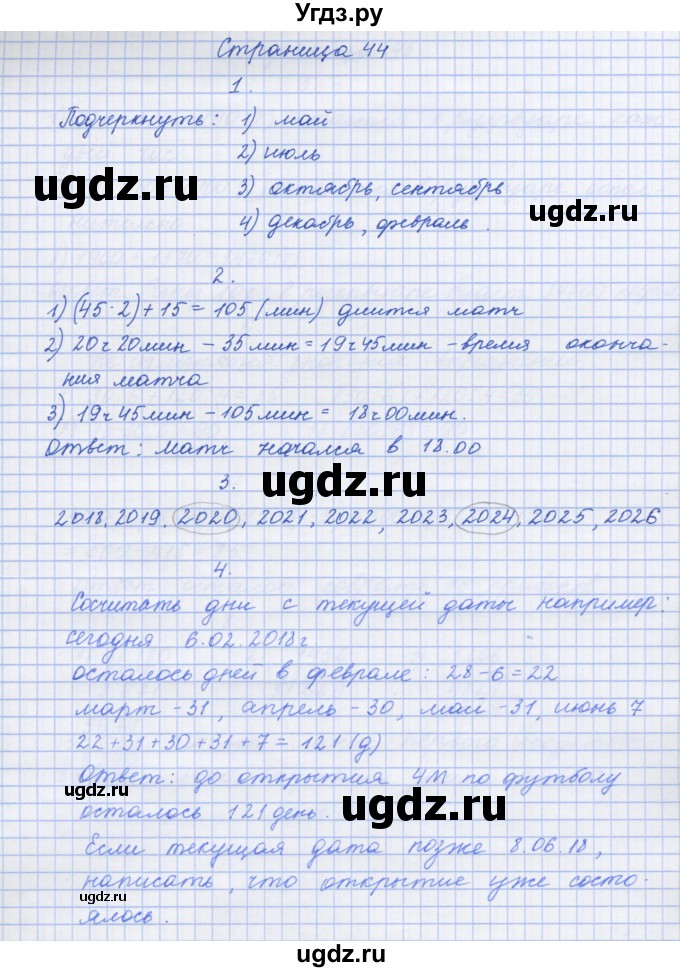 Угдз.ру
Страница 44
1.
Подчеркнуть: 1) май
2) июль
3) октябрь, сентябрь
4) декабрь, февраль.
ugdz.ru
ugdz.ru
2.
1) (45·2)+15 = 105 (мин) длится матч
2) 20ч 20мин - 35мин = 19ч 45мин - время оконча-
ния матча
3) 19ч 45мин - 105мин = 18ч 00мин.
Ответ: матч начался в 18.00
ugdz.ru
3.
2018, 2019, 2020, 2021, 2022, 2023, 2024, 2025, 2026
4.
Сосчитать дни с текущей даты например:
сегодня 6.02.2018г.
осталось дней в феврале: 28-6=22
март -31, апрель -30, май -31, июнь 7
22+31+30+31+7= 121 (д)
Ответ: до открытия ЧМ по футболу
осталось 121 день.
ugdz.ru
ugdz.ru
Если текущая дата позже 8.06.18,
написать, что открытие уже состо-
ялось.
ugdz.ru
ugdz.ru
ugdz.ru